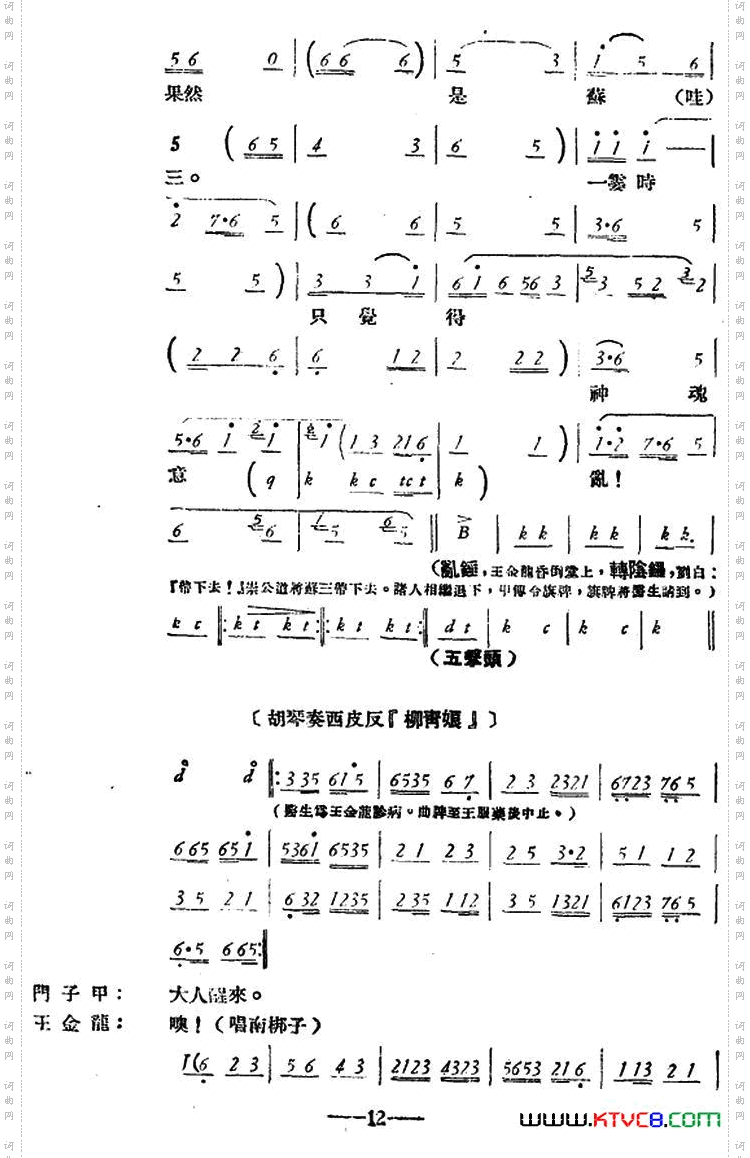 5 6 0 | (6 6 6) | 5 3 | i 5 6 |
果然 是 蘇 (哇)
5 (6 5 | 4 3 | 6 5) | i i i — |
三。 一霎時
2 7·6 5 | (6 6 | 5 5 | 3·6 5 |
5 5) | 3 3 i | 6 i 6 56 3 | 5 3 5 2 3 2 |
只覺得
(2 2 6 | 6 1 2 | 2 2 2) | 3·6 5 |
神 魂
5·6 i 2 i | 6 i (1 3 216 | 1 1) | i·2 7·6 5 |
意 (q k k c tct | k) 亂!
6 5 6 | 1 5 6 5 || B | k k | k k | k k. |
(亂錘,王金龍昏倒堂上,轉陰鑼,劉白:
『帶下去!』崇公道將蘇三帶下去。諸人相繼退下,甲傳令旗牌,旗牌將醫生請到。)
k c |: k t k t :|: k t k t :| d t | k c | k c | k ||
(五擊頭)
〔胡琴奏西皮反『柳青娘』〕
d d |: 3 35 61 5 | 6535 6 7 | 2 3 2321 | 6723 76 5 |
(醫生爲王金龍診病。曲牌至王服藥後中止。)
6 65 65 i | 536i 6535 | 2 1 2 3 | 2 5 3·2 | 5 1 1 2 |
3 5 2 1 | 6 32 1235 | 2 35 1 12 | 3 5 1321 | 6123 76 5 |
6·5 6 65 :|
門子甲: 大人醒來。
王金龍: 噢!(唱南梆子)
1(6 2 3 | 5 6 4 3 | 2123 4323 | 5653 21 6 | 1 13 2 1 |
—12—
www.KTVC8.com
词曲网